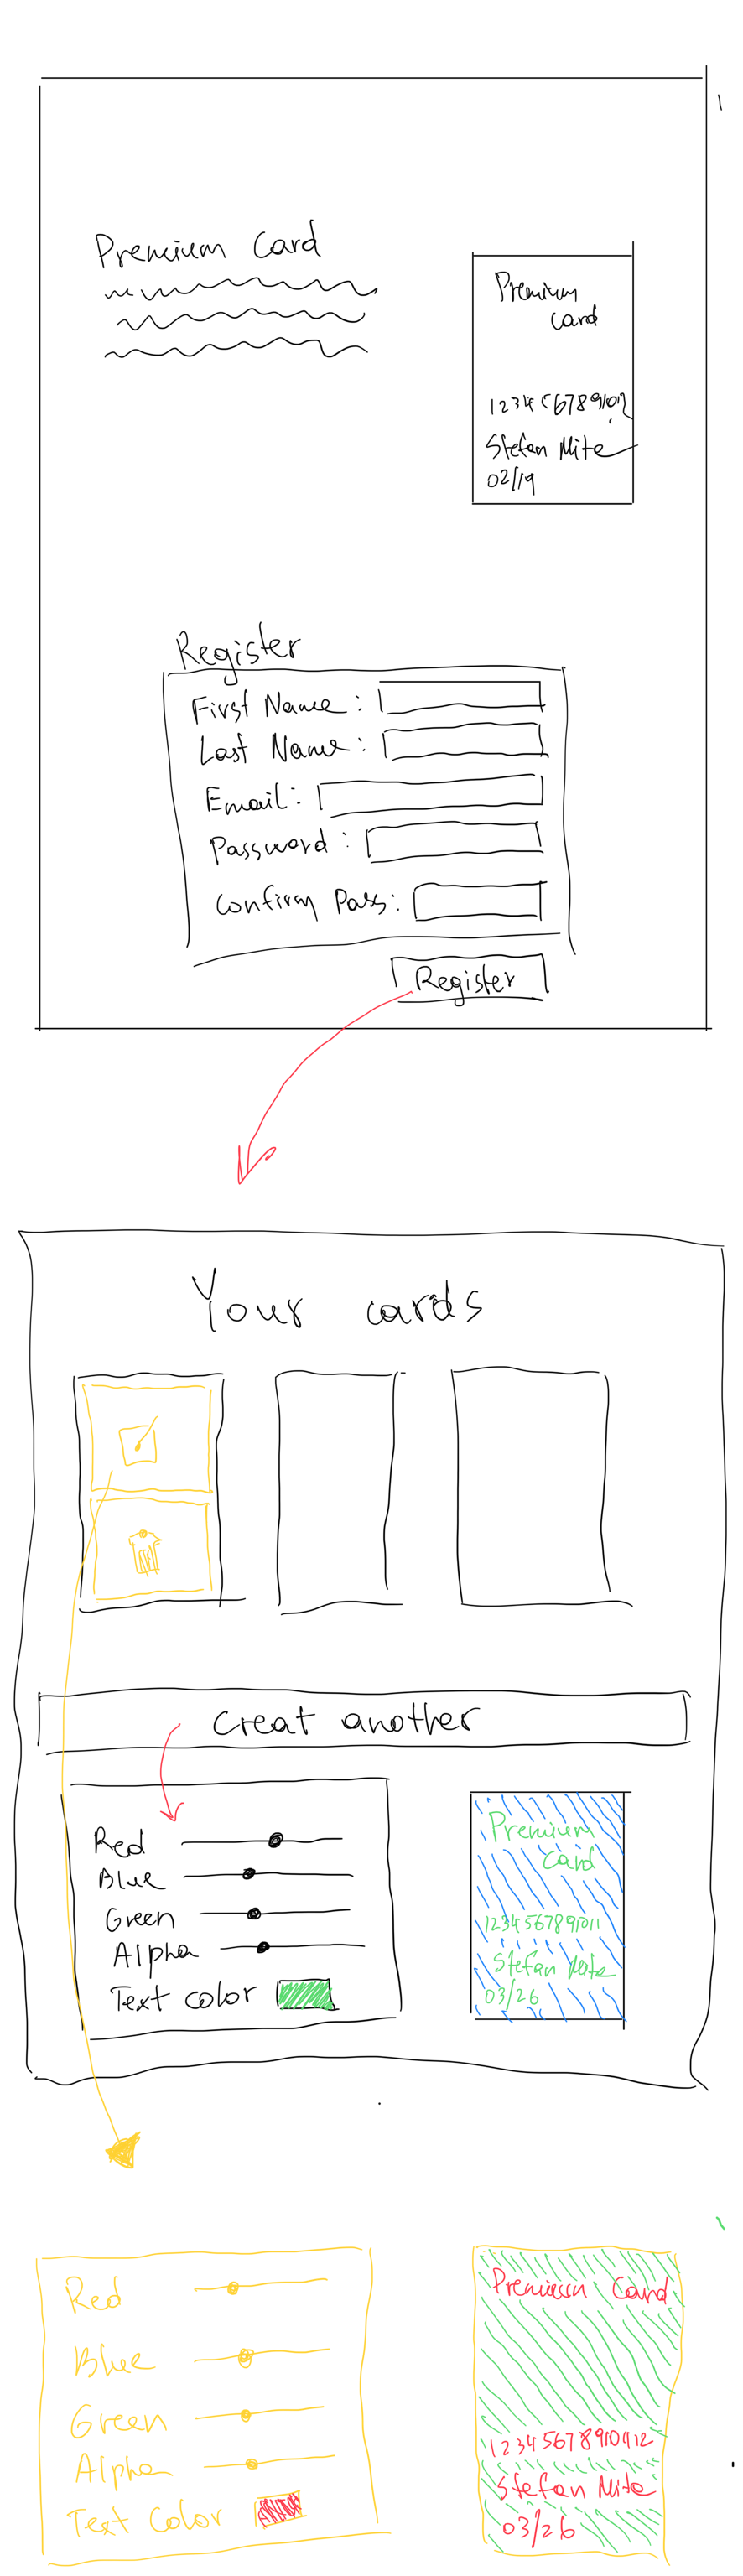 Premium Card
Premium
card
1234567891012
Stefan Mite
02/19
Register
First Name:
Last Name:
Email:
Password:
Confirm Pass:
Register
Your cards
Creat another
Red
Blue
Green
Alpha
Text color
Premium
Card
1234567891011
Stefan Mite
03/26
Red
Blue
Green
Alpha
Text Color
Premium Card
123456789101112
Stefan Mite
03/26